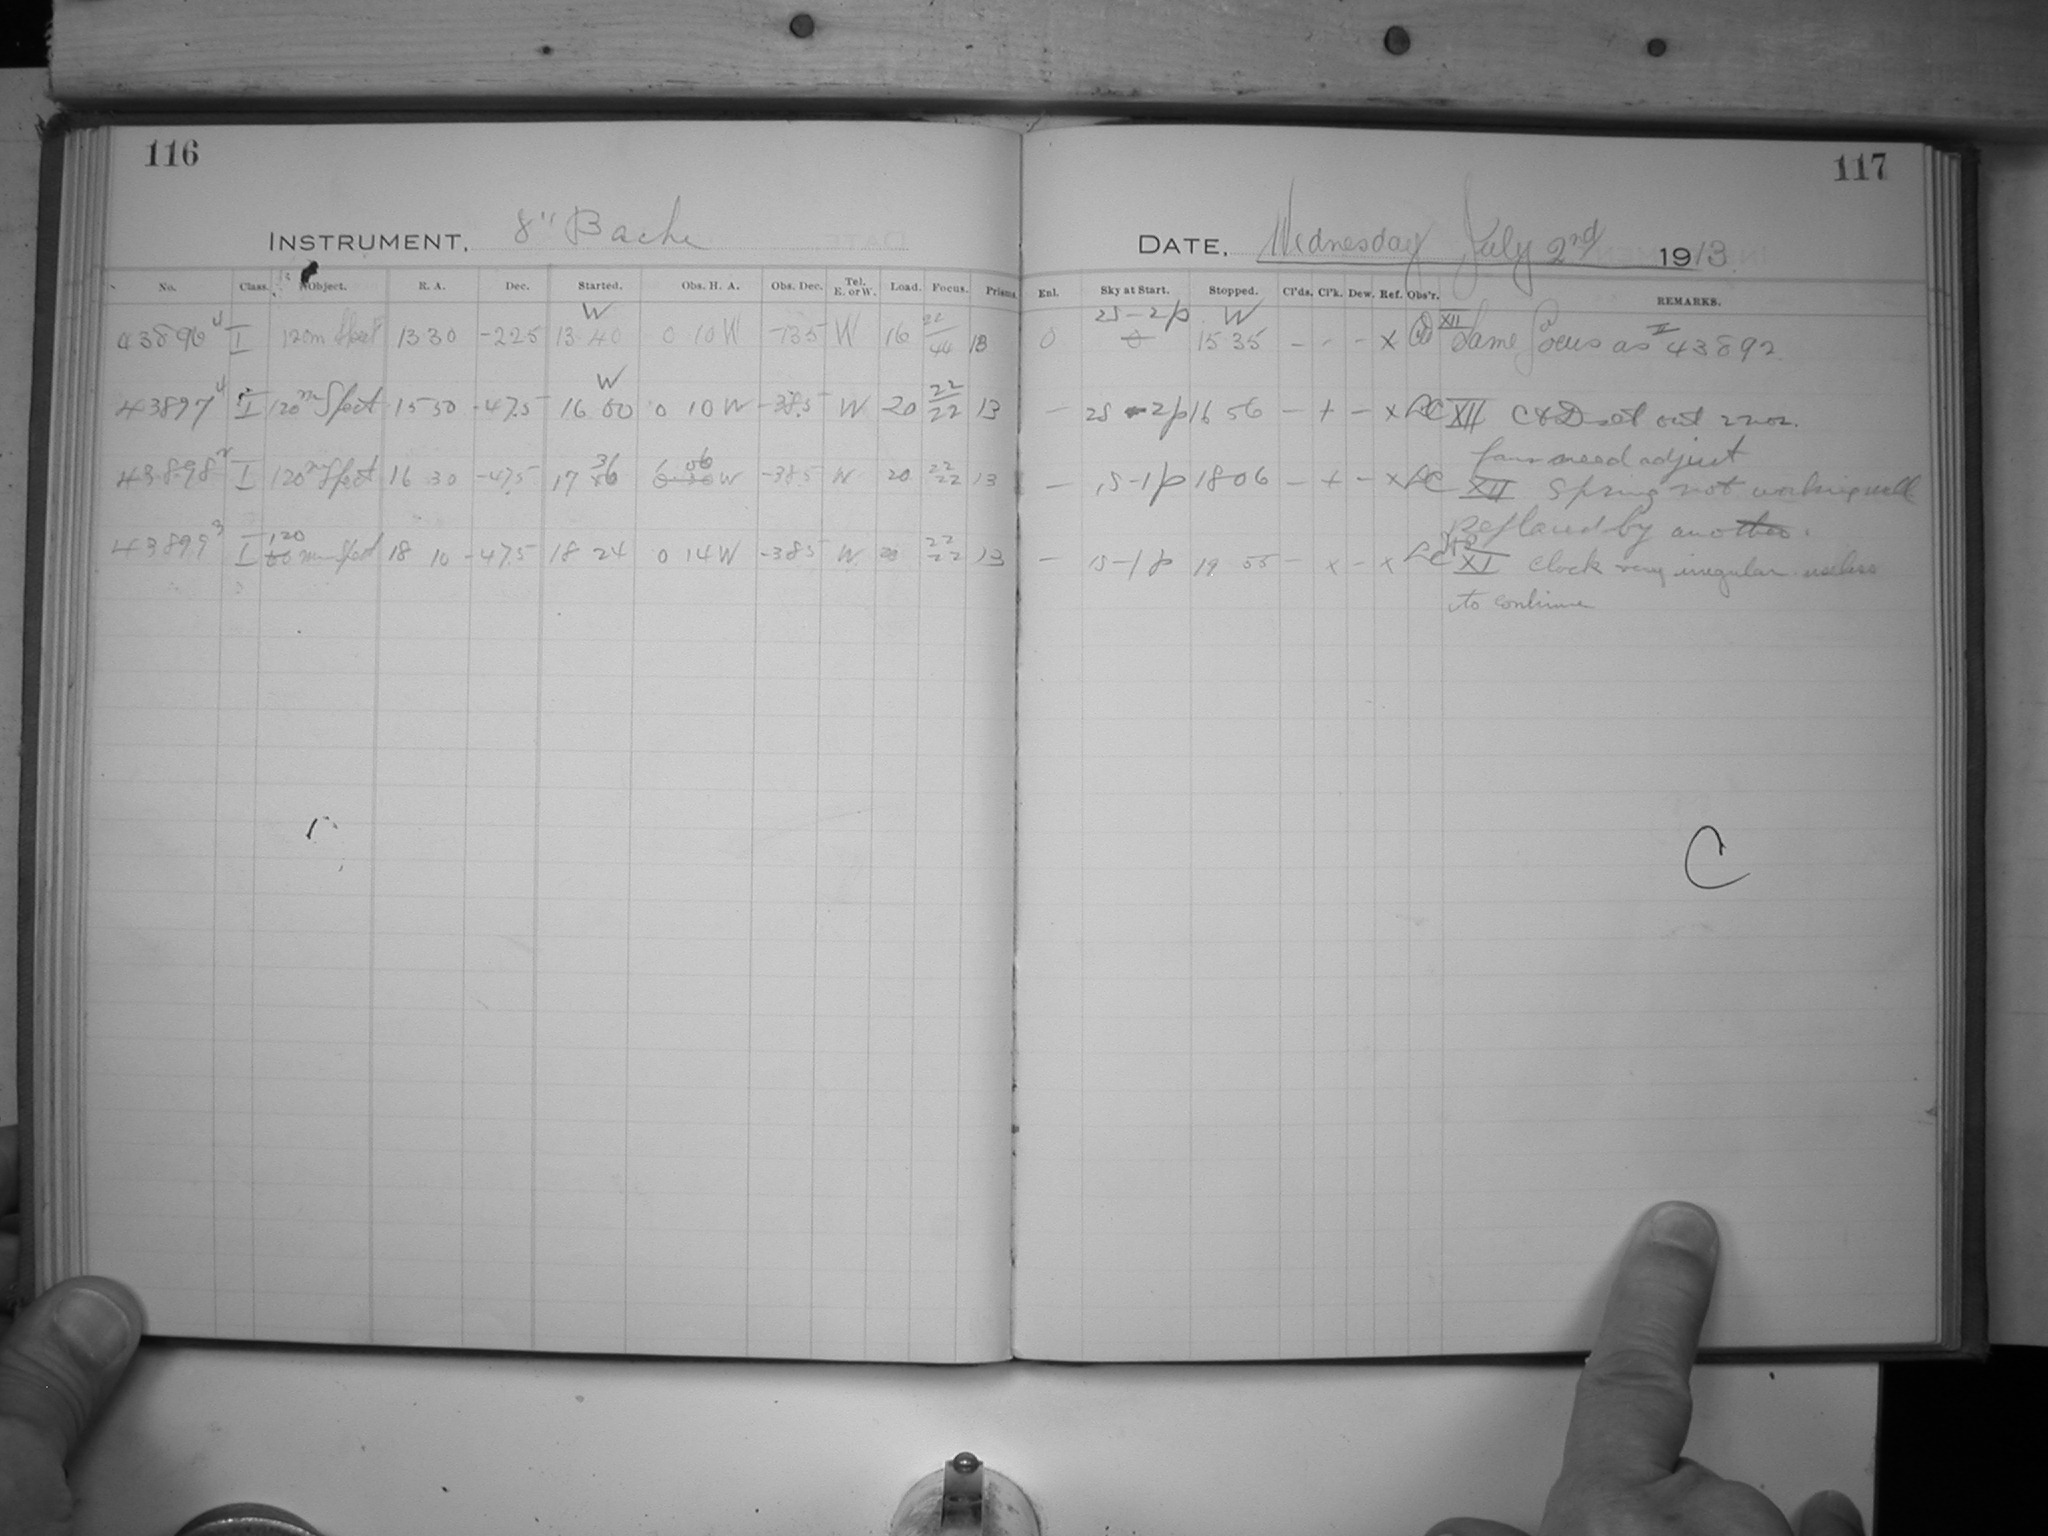 116
INSTRUMENT. 8" Bache
No. Class. Object. R. A. Dec. Started. Obs. H. A. Obs. Dec. Tel. E. or W. Load. Focus. Prisms
43896 4 I 120m Spect 13 30 -22.5 W 13 40 0 10 W W 16 22/44 13
43897 4 I 120m Spect 15 50 -47.5 W 16 00 0 10 W -38.5 W 20 22/22 13
43898 2 I 120m Spect 16 30 -47.5 17 36 06 W -38.5 W 20 22/22 13
43899 3 I 120 min Spect 18 10 -47.5 18 24 0 14 W -38.5 W 20 22/22 13
117
DATE, Wednesday July 2nd 1913
Enl. Sky at Start. Stopped. Cl'ds. Cl'k. Dew. Ref. Obs'r. REMARKS.
0 2s-2p W 15 35 - - - x XII Same focus as II 43892
- 2s - 2p 16 56 - + - x XII set out
fans need adjust
- 1s-1p 18 06 - + - x XII Spring not working well
Replaced by another.
- 1s-1p 19 - x - x XI Clock very irregular useless
to continue
C